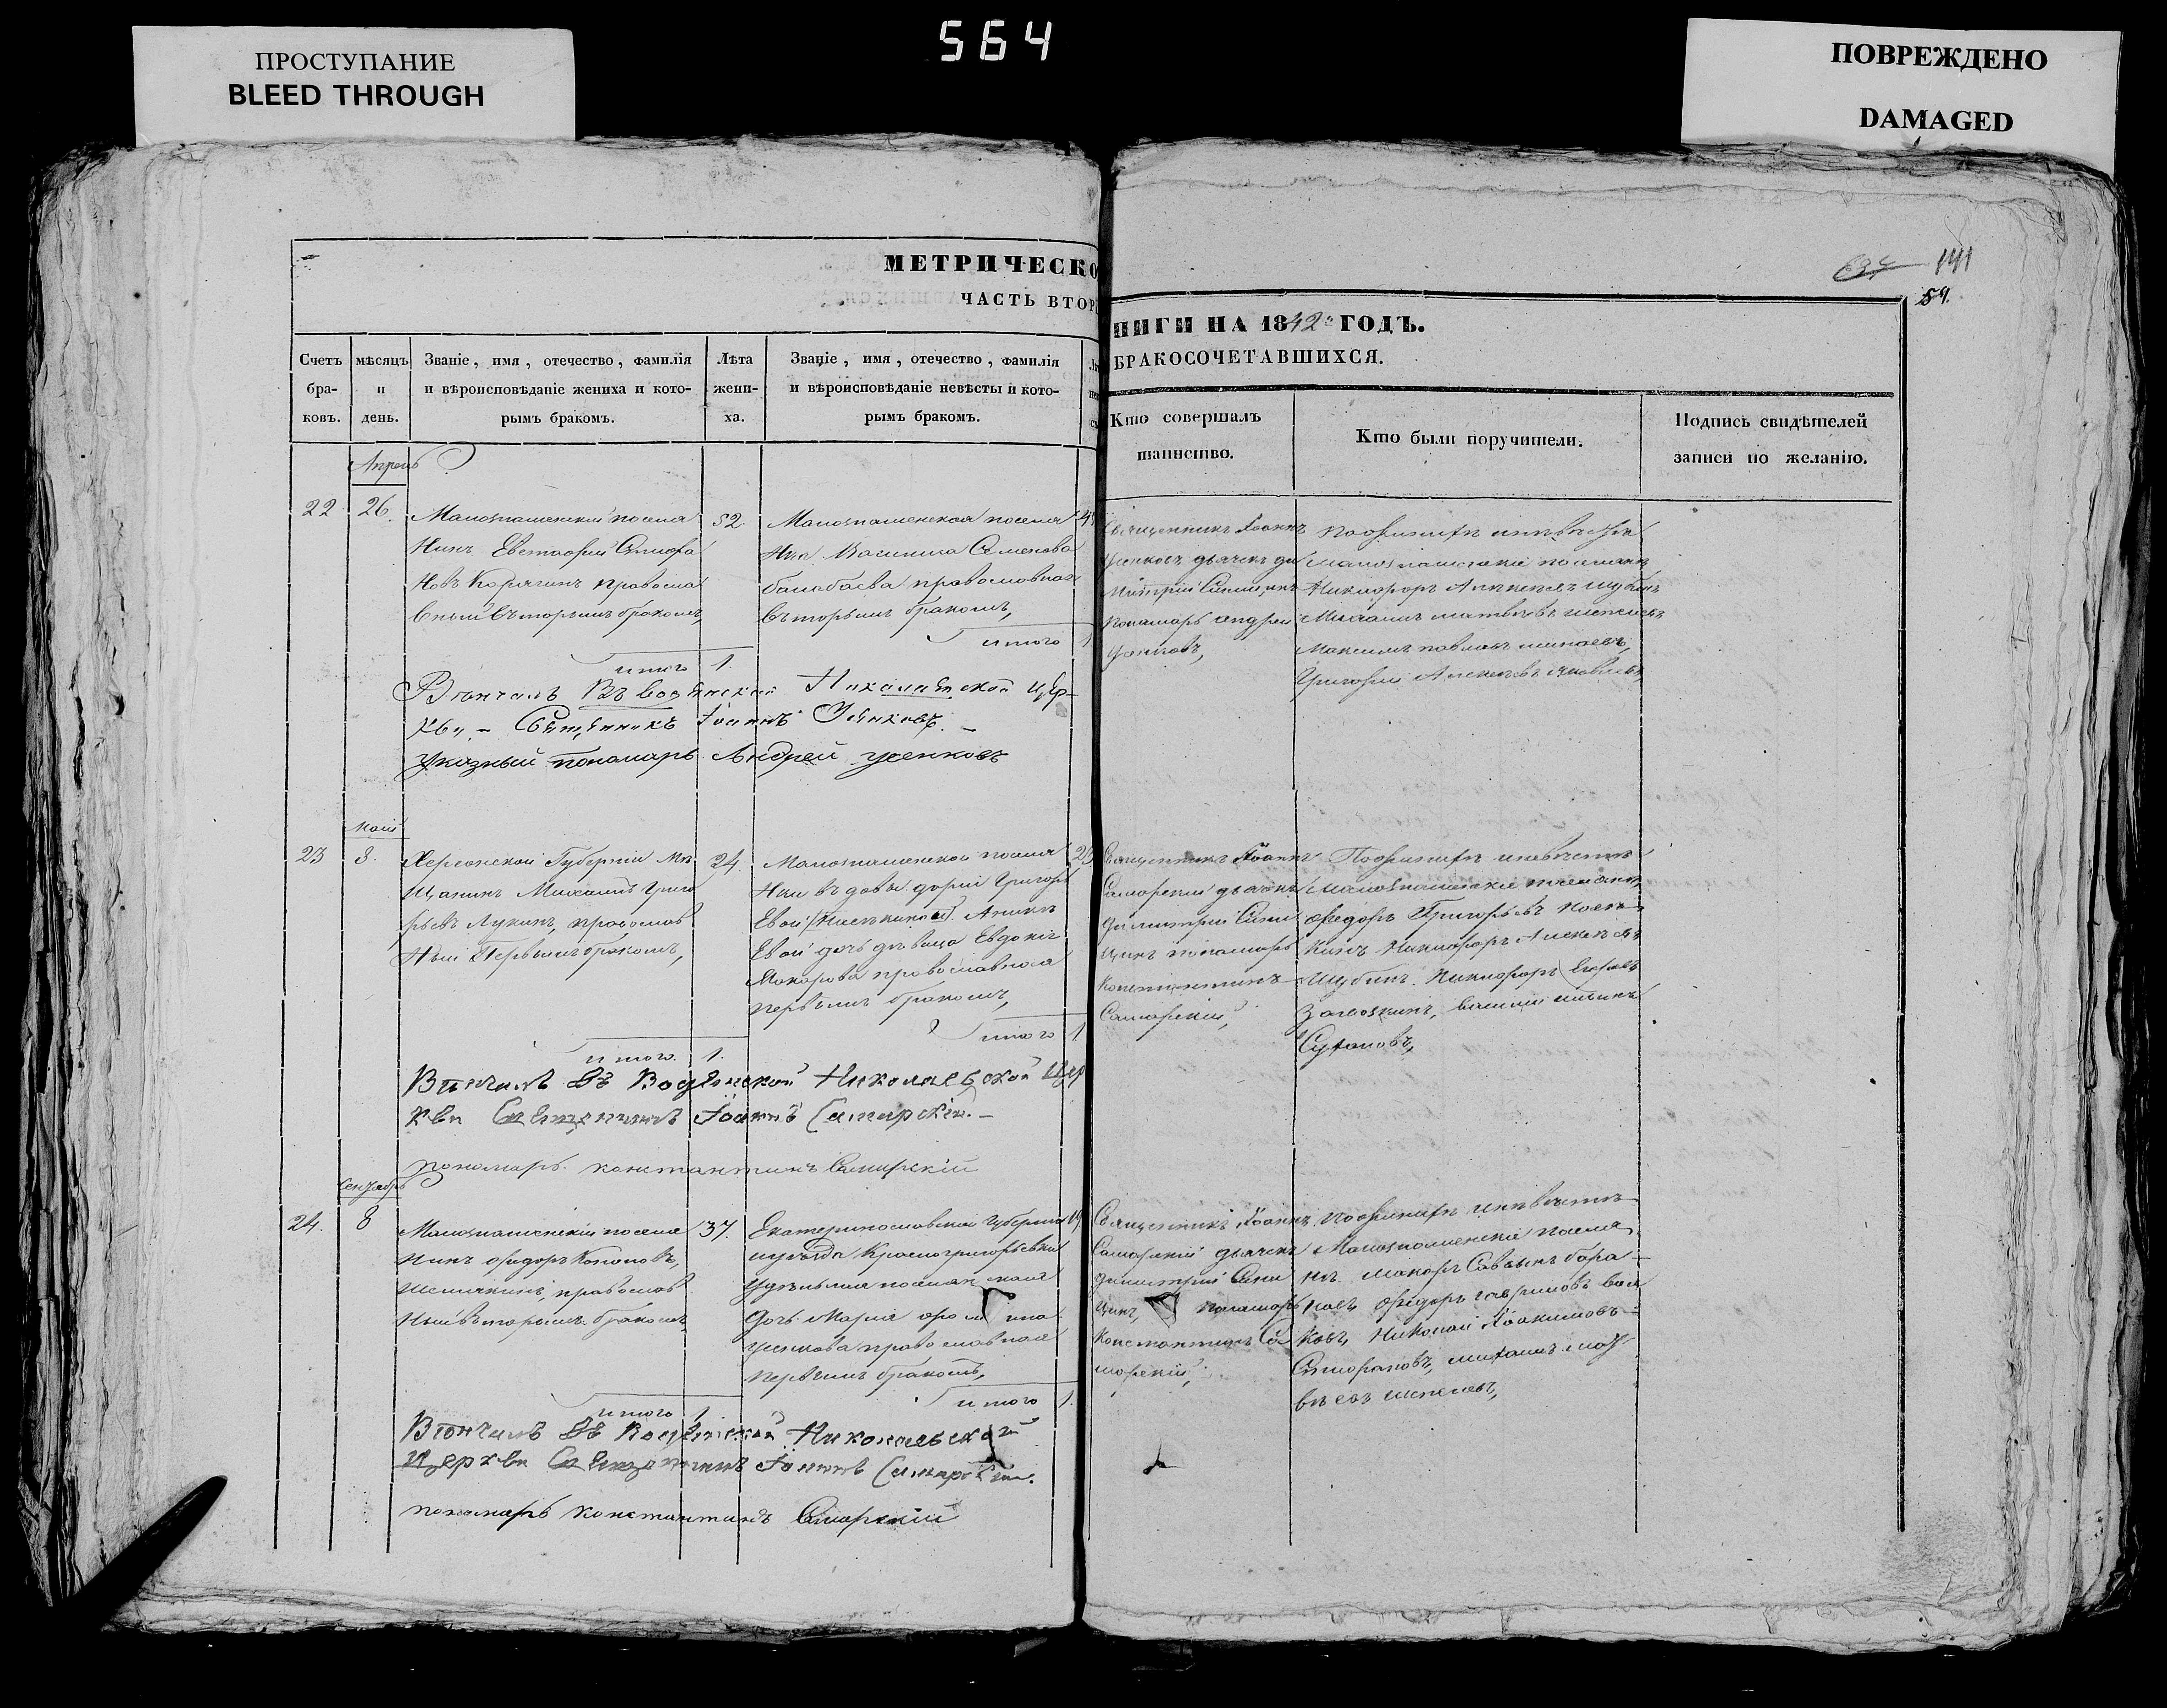 564
ПРОСТУПАНИЕ
BLEED THROUGH
ПОВРЕЖДЕНО
DAMAGED
141
59.
МЕТРИЧЕСКО
ЧАСТЬ ВТОР
НИГИ НА 1842 ГОДЪ.
БРАКОСОЧЕТАВШИХСЯ.
Счетъ бра-ковъ.
мѣсяцъ и день.
Званіе, имя, отечество, фамилія
и вѣроисповѣданіе жениха и кото-
рымъ бракомъ.
Лѣта жени-ха.
Званіе, имя, отечество, фамилія
и вѣроисповѣданіе невѣсты и кото-
рымъ бракомъ.
Кто совершалъ
таинство.
Кто были поручители.
Подпись свидѣтелей
записи по желанію.
Апрель
22
26.
Малознаменскій поселя
нинъ Евстафій
Корягинъ православ
вный вторымъ бракомъ,
52.
Малознаменская поселя
Василиса Семенова
православная
вторымъ бракомъ,
итого 1
Священникъ Іоаннъ
Усенковъ дьячекъ Ди
митрій
пономарь Андрей
Усенковъ,
По женихѣ и невѣстѣ
малознаменскіе поселяне
Никифоръ Алексѣевъ Шубинъ
Михаилъ Матвѣевъ Шепелевъ
Максимъ Павловъ
Григорій Алексѣевъ
итого 1.
Вѣнчалъ Въ Водянской Николаевской Цер-
кви. – Священникъ Іоаннъ Усенковъ. –
Указный пономарь Андрей Усенковъ
Май
23
8.
Херсонской Губерніи Мѣ
щанинъ Михаилъ Григо
рьевъ Лукинъ, православ
ный Первымъ бракомъ,
24.
Малознаменской поселя
нки вдовы Дарьи Григорь
евой
дочь дѣвица Евдокія
Макарова православная
первымъ бракомъ,
итого 1
Священникъ Іоаннъ
Самарскій дьячекъ
Димитрій
пономарь
Константинъ
Самарскій,
По женихѣ и невѣстѣ
Малознаменскіе поселяне,
Федоръ Григорьевъ
Никифоръ Алексѣевъ
Шубинъ. Никифоръ Егоровъ
Василій
итого. 1.
Вѣнчалъ Въ Водянской Николаевской Цер
кви Священникъ Іоаннъ Самарскій. –
пономарь Константинъ Самарскій
Сентябрь
24.
8
Малознаменскій поселя
нинъ Федоръ Кононовъ
православ
ный вторымъ бракомъ
37.
Екатеринославской Губерніи
Красногригорьевки
дочь Марія
Усенкова православная
первымъ бракомъ,
итого 1.
19
Священникъ Іоаннъ
Самарскій дьячекъ
Димитрій
пономарь
Константинъ Са
марскій,
По женихѣ и невѣстѣ
Малознаменскіе поселя
не. Макаръ Саввинъ Бара-
новъ, Федоръ Гавриловъ
Николай Іоакимовъ
Михаилъ Мат
вѣевъ Шепелевъ,
итого 1.
Вѣнчалъ Въ Водянской Николаевской
Церкви Священникъ Іоаннъ Самарскій.
пономарь Константинъ Самарскій